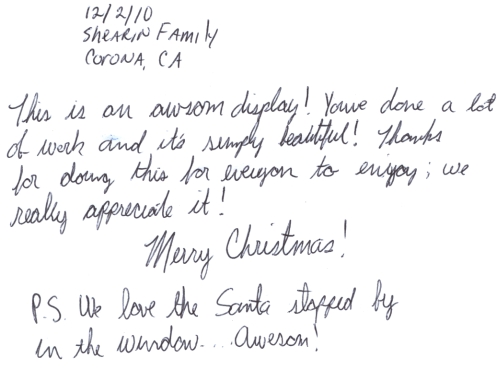 12/2/10
Shearin Family
Corona, CA
This is an awsom display! Youve done a lot
of work and it's simply beautiful! Thanks
for doing this for everyon to enjoy; we
really appreciate it!
Merry Christmas!
P.S. We love the Santa stopped by
in the window....Awesom!